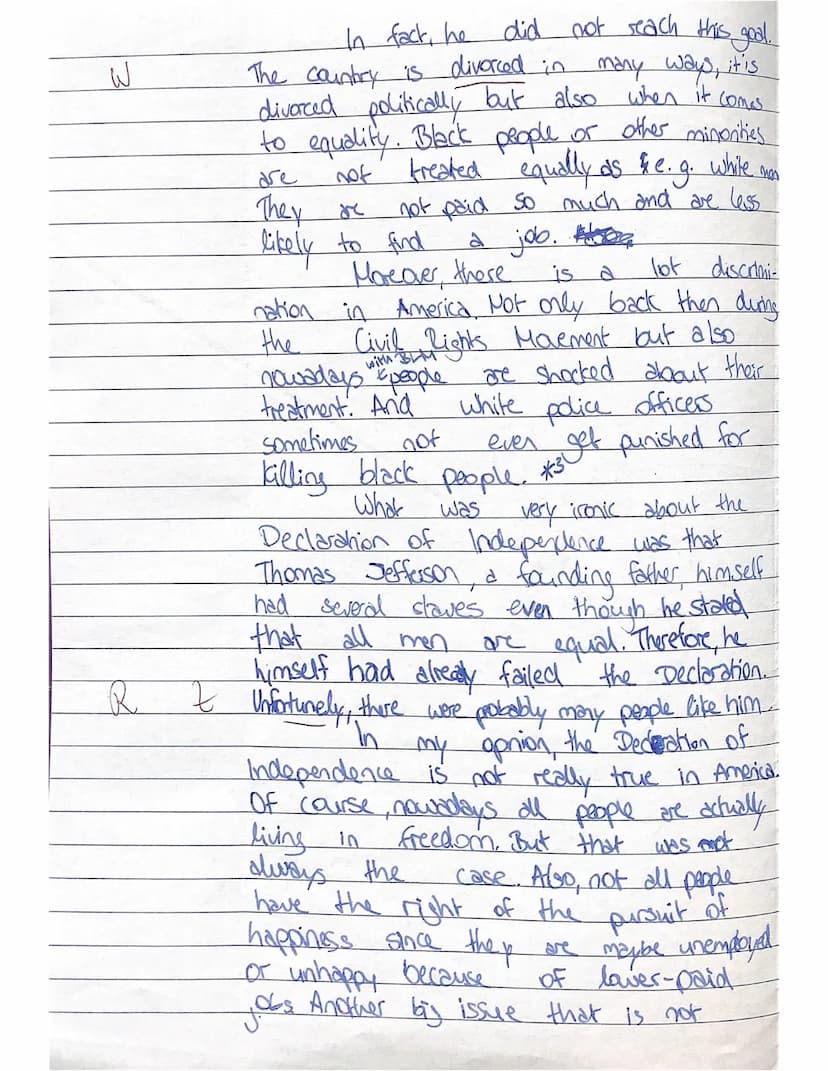 In fact, he did not reach this goal.
W The country is divorced in many ways, it's
divorced politically but also when it comes
to equality. Black people or other minorities
are not treated equally as e.g. white men
They are not paid so much and are less
likely to find a job.
Moreover, there is a lot discrimi-
nation in America. Not only back then during
the Civil Rights Movement but also
with BLM
nowadays people are shocked about their
treatment. And white police officers
sometimes not even get punished for
killing black people. *3
What was very ironic about the
Declaration of Independence was that
Thomas Jefferson, a founding father, himself
had several slaves even though he stated
that all men are equal. Therefore, he
himself had already failed the Declaration.
R Z Unfortunely, there were probably many people like him.
In my opnion, the Declaration of
Independence is not really true in America.
Of course, nowadays all people are actually
living in freedom. But that was not
always the case. Also, not all people
have the right of the pursuit of
happiness since they are maybe unemployed
or unhappy because of lower-paid
jobs Another big issue that is not